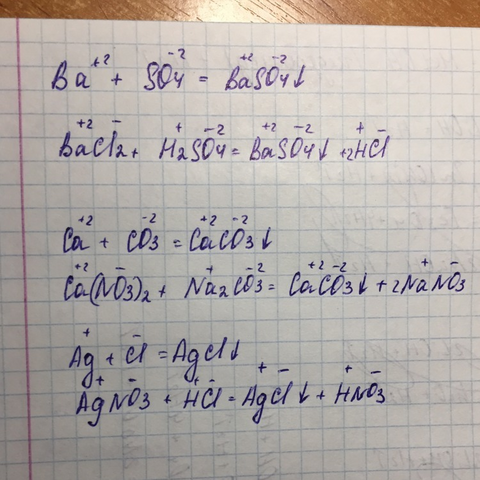 Ba⁺² + SO₄⁻² = Ba⁺²SO₄⁻²↓
Ba⁺²Cl₂⁻ + H₂⁺SO₄⁻² = Ba⁺²SO₄⁻²↓ + 2H⁺Cl⁻
Ca⁺² + CO₃⁻² = Ca⁺²CO₃⁻²↓
Ca⁺²(NO₃⁻)₂ + Na₂⁺CO₃⁻² = Ca⁺²CO₃⁻²↓ + 2Na⁺NO₃⁻
Ag⁺ + Cl⁻ = AgCl↓
Ag⁺NO₃⁻ + H⁺Cl⁻ = Ag⁺Cl⁻↓ + H⁺NO₃⁻